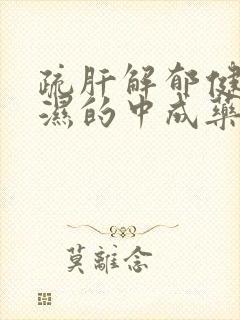 疏肝解郁健
濕的中成藥
莫離念